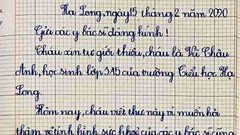 Hạ Long, ngày 15 tháng 2 năm 2020
Gửi các y bác sĩ đáng kính!
Cháu xin tự giới thiệu, cháu là Vũ Châu
Anh, học sinh lớp 3A5 của trường Tiểu học Hạ
Long.
Hôm nay, cháu viết thư này vì muốn hỏi
thăm về tình hình sức khỏe của các y bác sĩ cũng